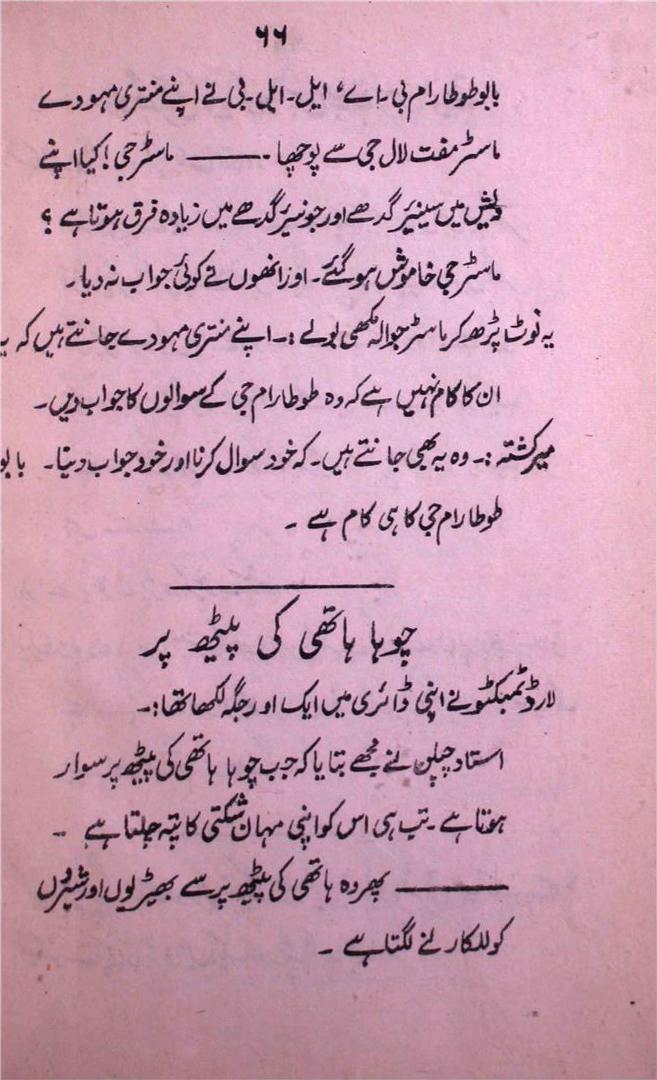 ۶۶
بابو طوطا رام بی۔ اے، ایل۔ ایل۔ بی نے اپنے منتری مہودے
ماسٹر مفت لال جی سے پوچھا ۔ ——— ماسٹر جی! کیا اپنے
دیش میں سینیئر گدھے اور جونیئر گدھے میں زیادہ فرق ہوتا ہے ؟
ماسٹر جی خاموش ہو گئے۔ اور انھوں نے کوئی جواب نہ دیا۔
یہ نوٹ پڑھ کر ماسٹر جوالہ مکھی بولے :۔ اپنے منتری مہودے جانتے ہیں کہ یہ
ان کا کام نہیں ہے کہ وہ طوطا رام جی کے سوالوں کا جواب دیں۔
میر کشتہ :۔ وہ یہ بھی جانتے ہیں۔ کہ خود سوال کرنا اور خود جواب دینا۔ بابو
طوطا رام جی کا ہی کام ہے ۔
چوہا ہاتھی کی پیٹھ پر
لارڈ ٹمبکٹو نے اپنی ڈائری میں ایک اور جگہ لکھا تھا:۔
استاد چپلن نے مجھے بتایا کہ جب چوہا ہاتھی کی پیٹھ پر سوار
ہوتا ہے۔ تب ہی اس کو اپنی مہان شکتی کا پتہ چلتا ہے ۔۔
——— پھر وہ ہاتھی کی پیٹھ پر سے بھیڑیوں اور شیروں
کو للکارنے لگتا ہے ۔